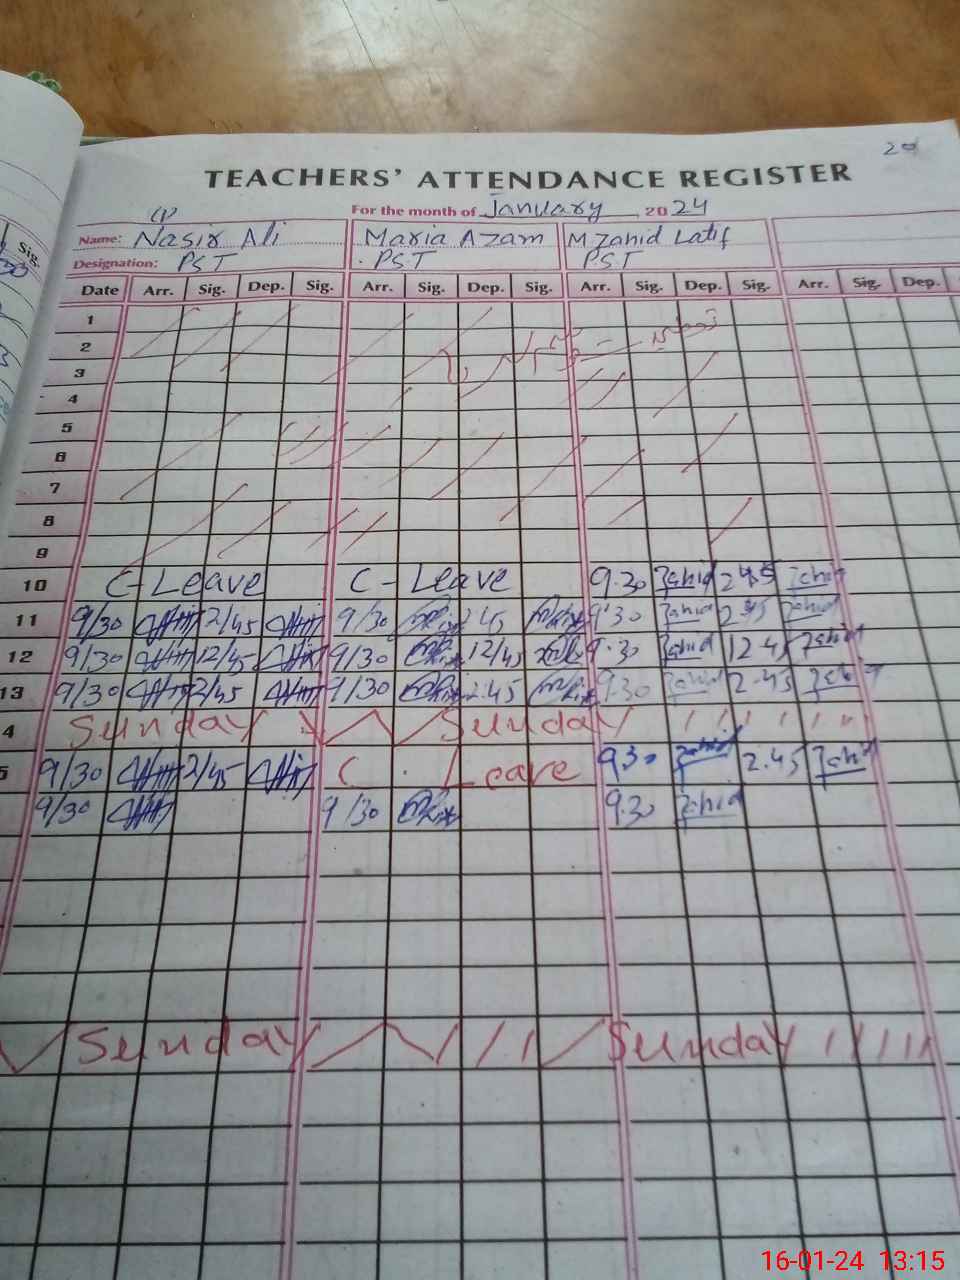 20
TEACHERS' ATTENDANCE REGISTER
For the month of January 2024
Name: Nasir Ali Maria Azam M Zahid Latif
Designation: PST PST PST
Sig.
Date Arr. Sig. Dep. Sig. Arr. Sig. Dep. Sig. Arr. Sig. Dep. Sig. Arr. Sig. Dep.
1
2
3
4
5
6
7
8
9
10 C-Leave C-Leave 9.30 Zahid 2.45 Zahid
11 9/30 2/45 9/30 2.45 9.30 Zahid 2.45 Zahid
12 9/30 12/45 9/30 12/45 9.30 Zahid 12.45 Zahid
13 9/30 2/45 9/30 2.45 9.30 Zahid 2.45 Zahid
4 Sunday Sunday
5 9/30 2/45 C. Leave 9.30 Zahid 2.45 Zahid
9/30 9/30 9.30 Zahid
Sunday Sunday
16-01-24 13:15